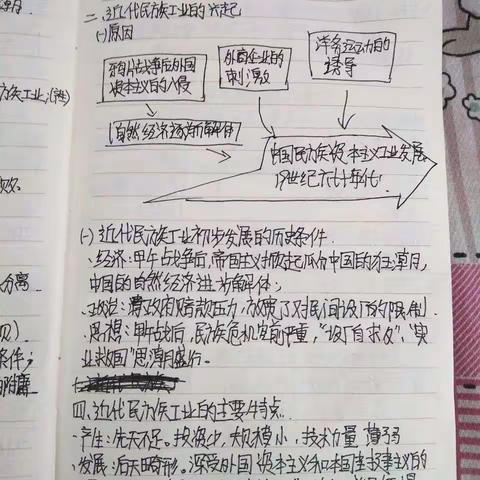 二、近代民族工业的兴起
(一)原因
鸦片战争后外国
资本主义的入侵
外商企业的
刺激
洋务运动的
诱导
自然经济逐渐解体
中国民族资本主义工业发展
19世纪六七十年代
(一)近代民族工业初步发展的历史条件
、经济:甲午战争后,帝国主义掀起瓜分中国的狂潮,
中国的自然经济进一步解体;
·政治:清政府赔款压力,放宽了对民间设厂的限制.
·思想:甲午战后,民族危机空前严重,"设厂自救","实
业救国"思潮盛行。
四、近代民族工业的主要特点
·产生:先天不足。投资少,规模小,技术力量薄弱
·发展:后天畸形。深受外国资本主义和本国封建主义的
族工业;
分离
条件;